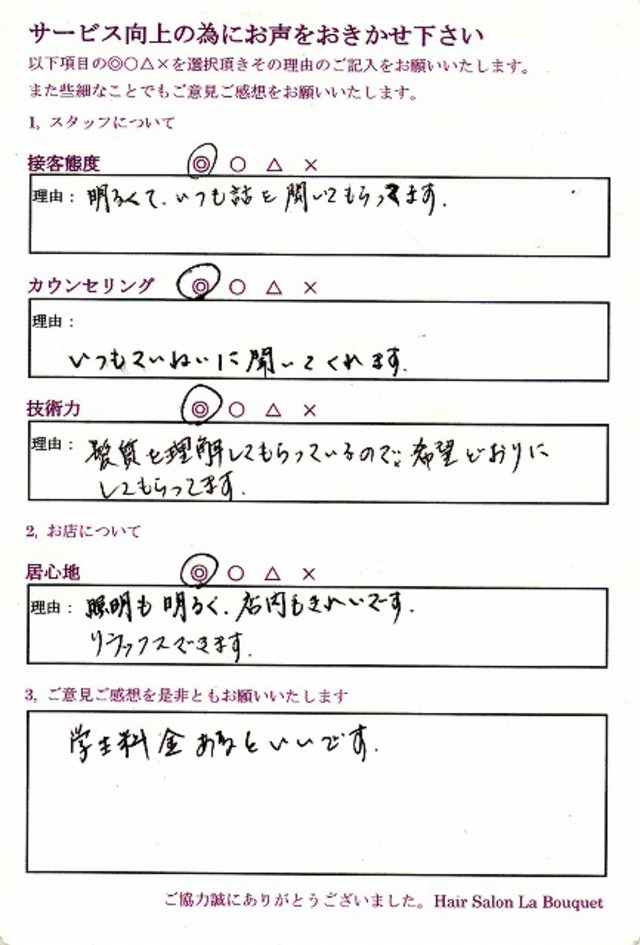 サービス向上の為にお声をおきかせ下さい
以下項目の◎○△×を選択頂きその理由のご記入をお願いいたします。
また些細なことでもご意見ご感想をお願いいたします。
1, スタッフについて
接客態度 ◎ ○ △ ×
理由： 明るくて、いつも話を聞いてもらってます。
カウンセリング ◎ ○ △ ×
理由：
いつもていねいに聞いてくれます。
技術力 ◎ ○ △ ×
理由： 髪質を理解してもらっているので、希望どおりに
してもらってます。
2, お店について
居心地 ◎ ○ △ ×
理由： 照明も明るく、店内もきれいです。
リラックスできます。
3, ご意見ご感想を是非ともお願いいたします
学生料金あるといいです。
ご協力誠にありがとうございました。Hair Salon La Bouquet